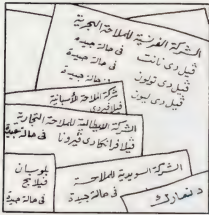 الشركة الفرنسية للملاحة البحرية
ڤيل دى نانت
فى حالة جيدة
ڤيل دى تولون
فى حالة جيدة
ڤيل دى ليون
فى حالة جيدة
شركة الملاحة الأسبانية
ڤيلا ڤيردى
الشركة الايطالية للملاحة التجارية
ڤيلا فرانكا دى ڤيرونا
فى حالة جيدة
بلوبيان
ڤيلا نج
فى حالة جيدة
الشركة السويدية للملاحة
فى حالة جيدة
دنمارك